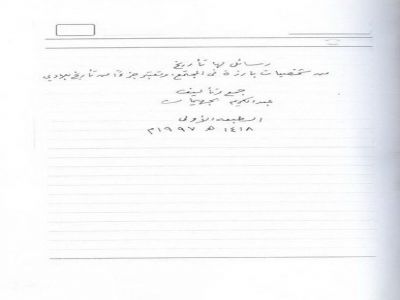 رسائل لها تاريخ
من شخصيات بارزة في المجتمع، وتعتبر جزءًا من تاريخ بلادي
جمع وتأليف
عبدالكريم الجهيمان
الطبعة الأولى
١٤١٨ هـ ١٩٩٧م